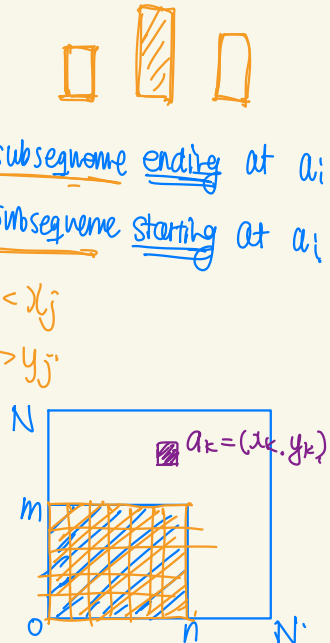 subsequence ending at ai
subsequence starting at ai
< xj
> yj
N
ak = (xk, yk)
m
0
n
N